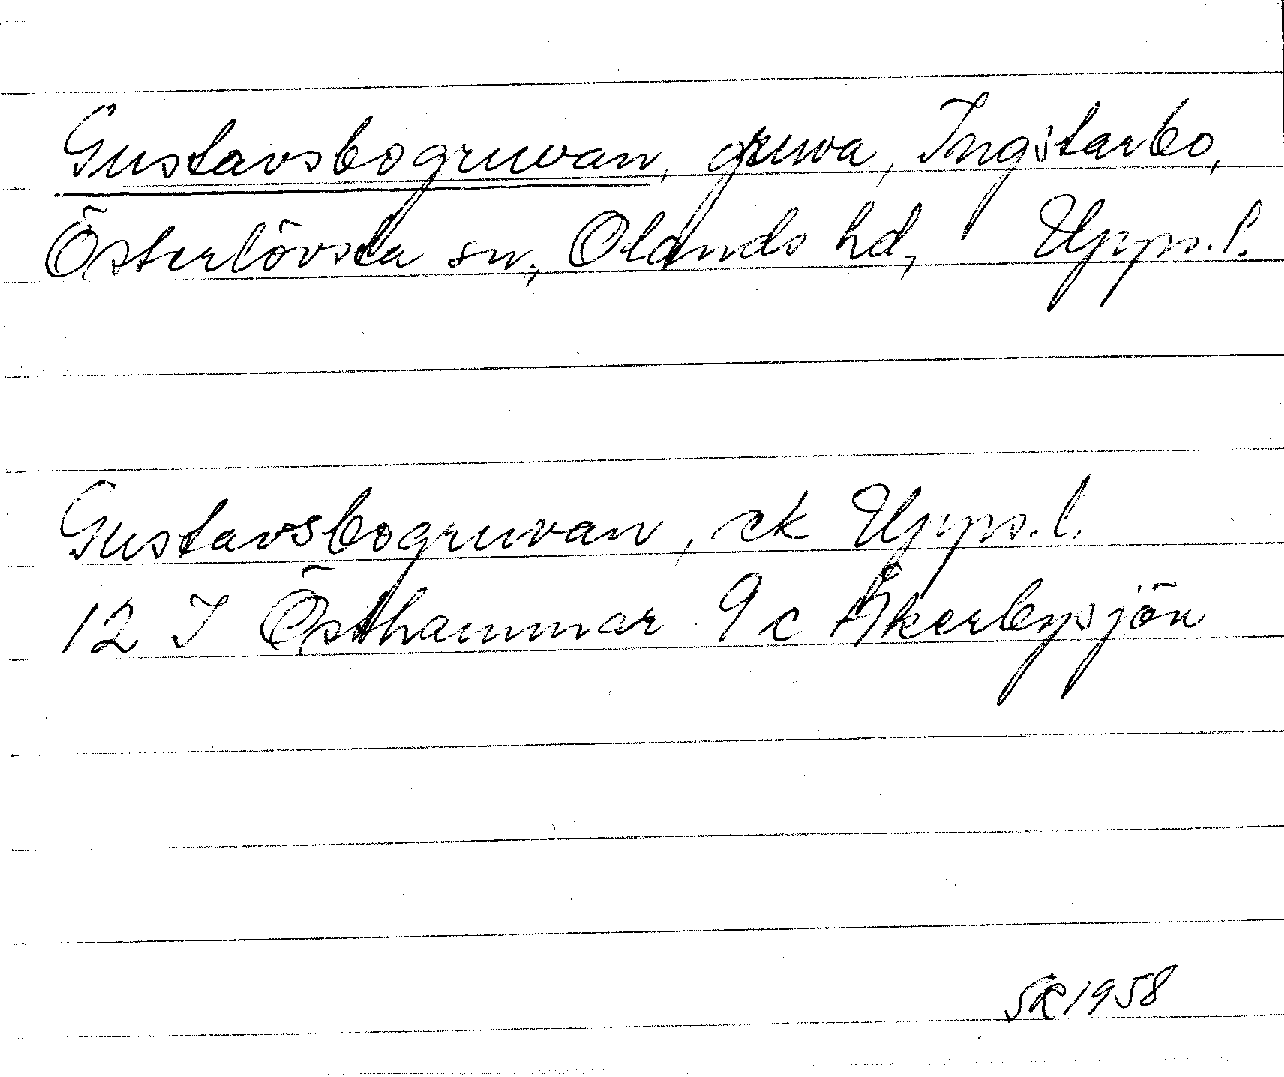 Gustavsbogruvan, gruva, Ingstarbo,
Österlövsta sn, Olands hd, Upps. l.
Gustavsbogruvan, ek Upps. l.
12 I Östhammar 9 c Åkerbysjön
SR 1958